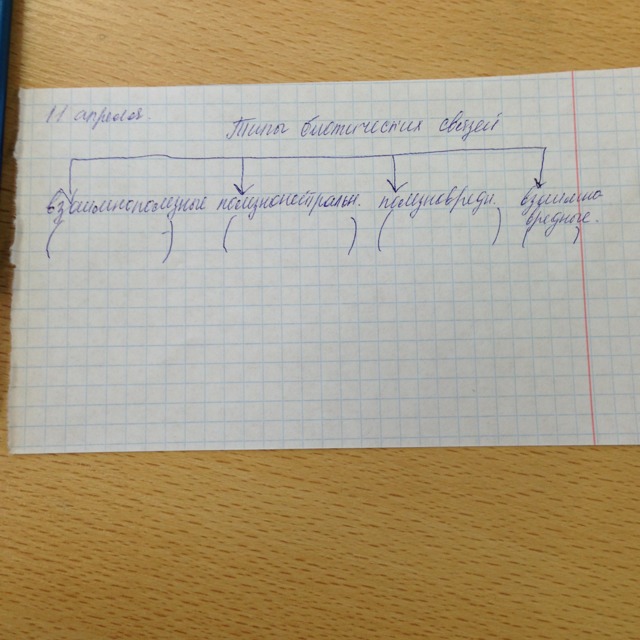 11 апреля.
Типы биотических связей
взаимнополезные полезнонейтральн. полезновредн. взаимно
вредные.
( ) ( ) ( ) ( )